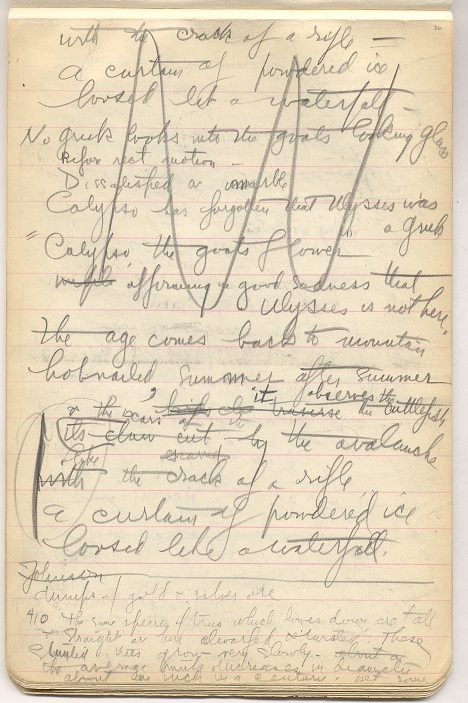 36
with the crack of a rifle —
a curtain of powdered ice
loosed like a waterfall —
No greek looks into the goats looking glass
before next motion —
Dissatisfied a marble
Calypso has forgotten that Ulysses was
a greek
"Calypso, the goat's flower"
affirming in good sadness that
Ulysses is not here,
The age comes back to mountain
hobnailed Summer after Summer
it observes the
& the scars traverse the cuttlefish
its claw cut by the avalanche
Like escaped
with the crack of a rifle
a curtain of powdered ice
loosed like a waterfall.
Johnson
dumps of gold & silver ore
410 The same species of trees which lower down are tall
straight are here dwarfed & twisted. These
stunted trees grow very slowly. about a
the average trunk increases in diameter
about an inch in a century. yet some